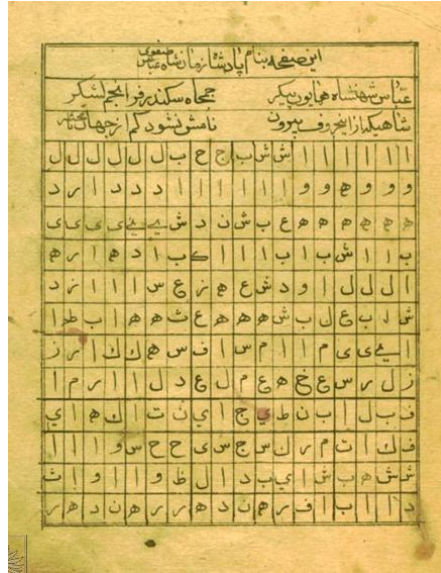 این صفحه بنام پادشاه زمان شاه عباس صفوی
عباس شهنشاه همایون پیکر جمجاه سکندر فر انجم لشکر
شاهیکه از اینحروف بیرون نامش نشود کم از جهان
ا ا ا ا ا ا ش ش ب ج ح ب ل ل ل ل ل ل
و و ه و و ا ا ا ا ا ا ا د د د ا ر د
ه ه ه ه ه ه ع ب ش ن د ش ی ی ی ی ی ی
ب ا ا ش ب ا ب ا ا ا ک ب ا د ه ا ر ه
ا ل ل ل ا و د ش ع ه ز ع س ا ا ا ز د
ش ا ب ع ل ب ش ه ه ه ع ث ه ه ا ب ط ا
ا ی ی ی م ا ا م س ا ف س ه ک ک ا ر ز
ز ل ر س ع خ ه ع م ل ع د ل ا ا ر م ا
ف ب ل ا ب ن ط ی ج ا ی ن ت ا ک ه ا ی
ف ک ا ت م ر ل س ج س ی ح ح س و ا ا ا
ش ش ه ب ش ا ی ب د ا ل ظ و ا ا و ا ث
د ا ا ب ا ف ر ه ن د ه ر ر ه ن د ه ر